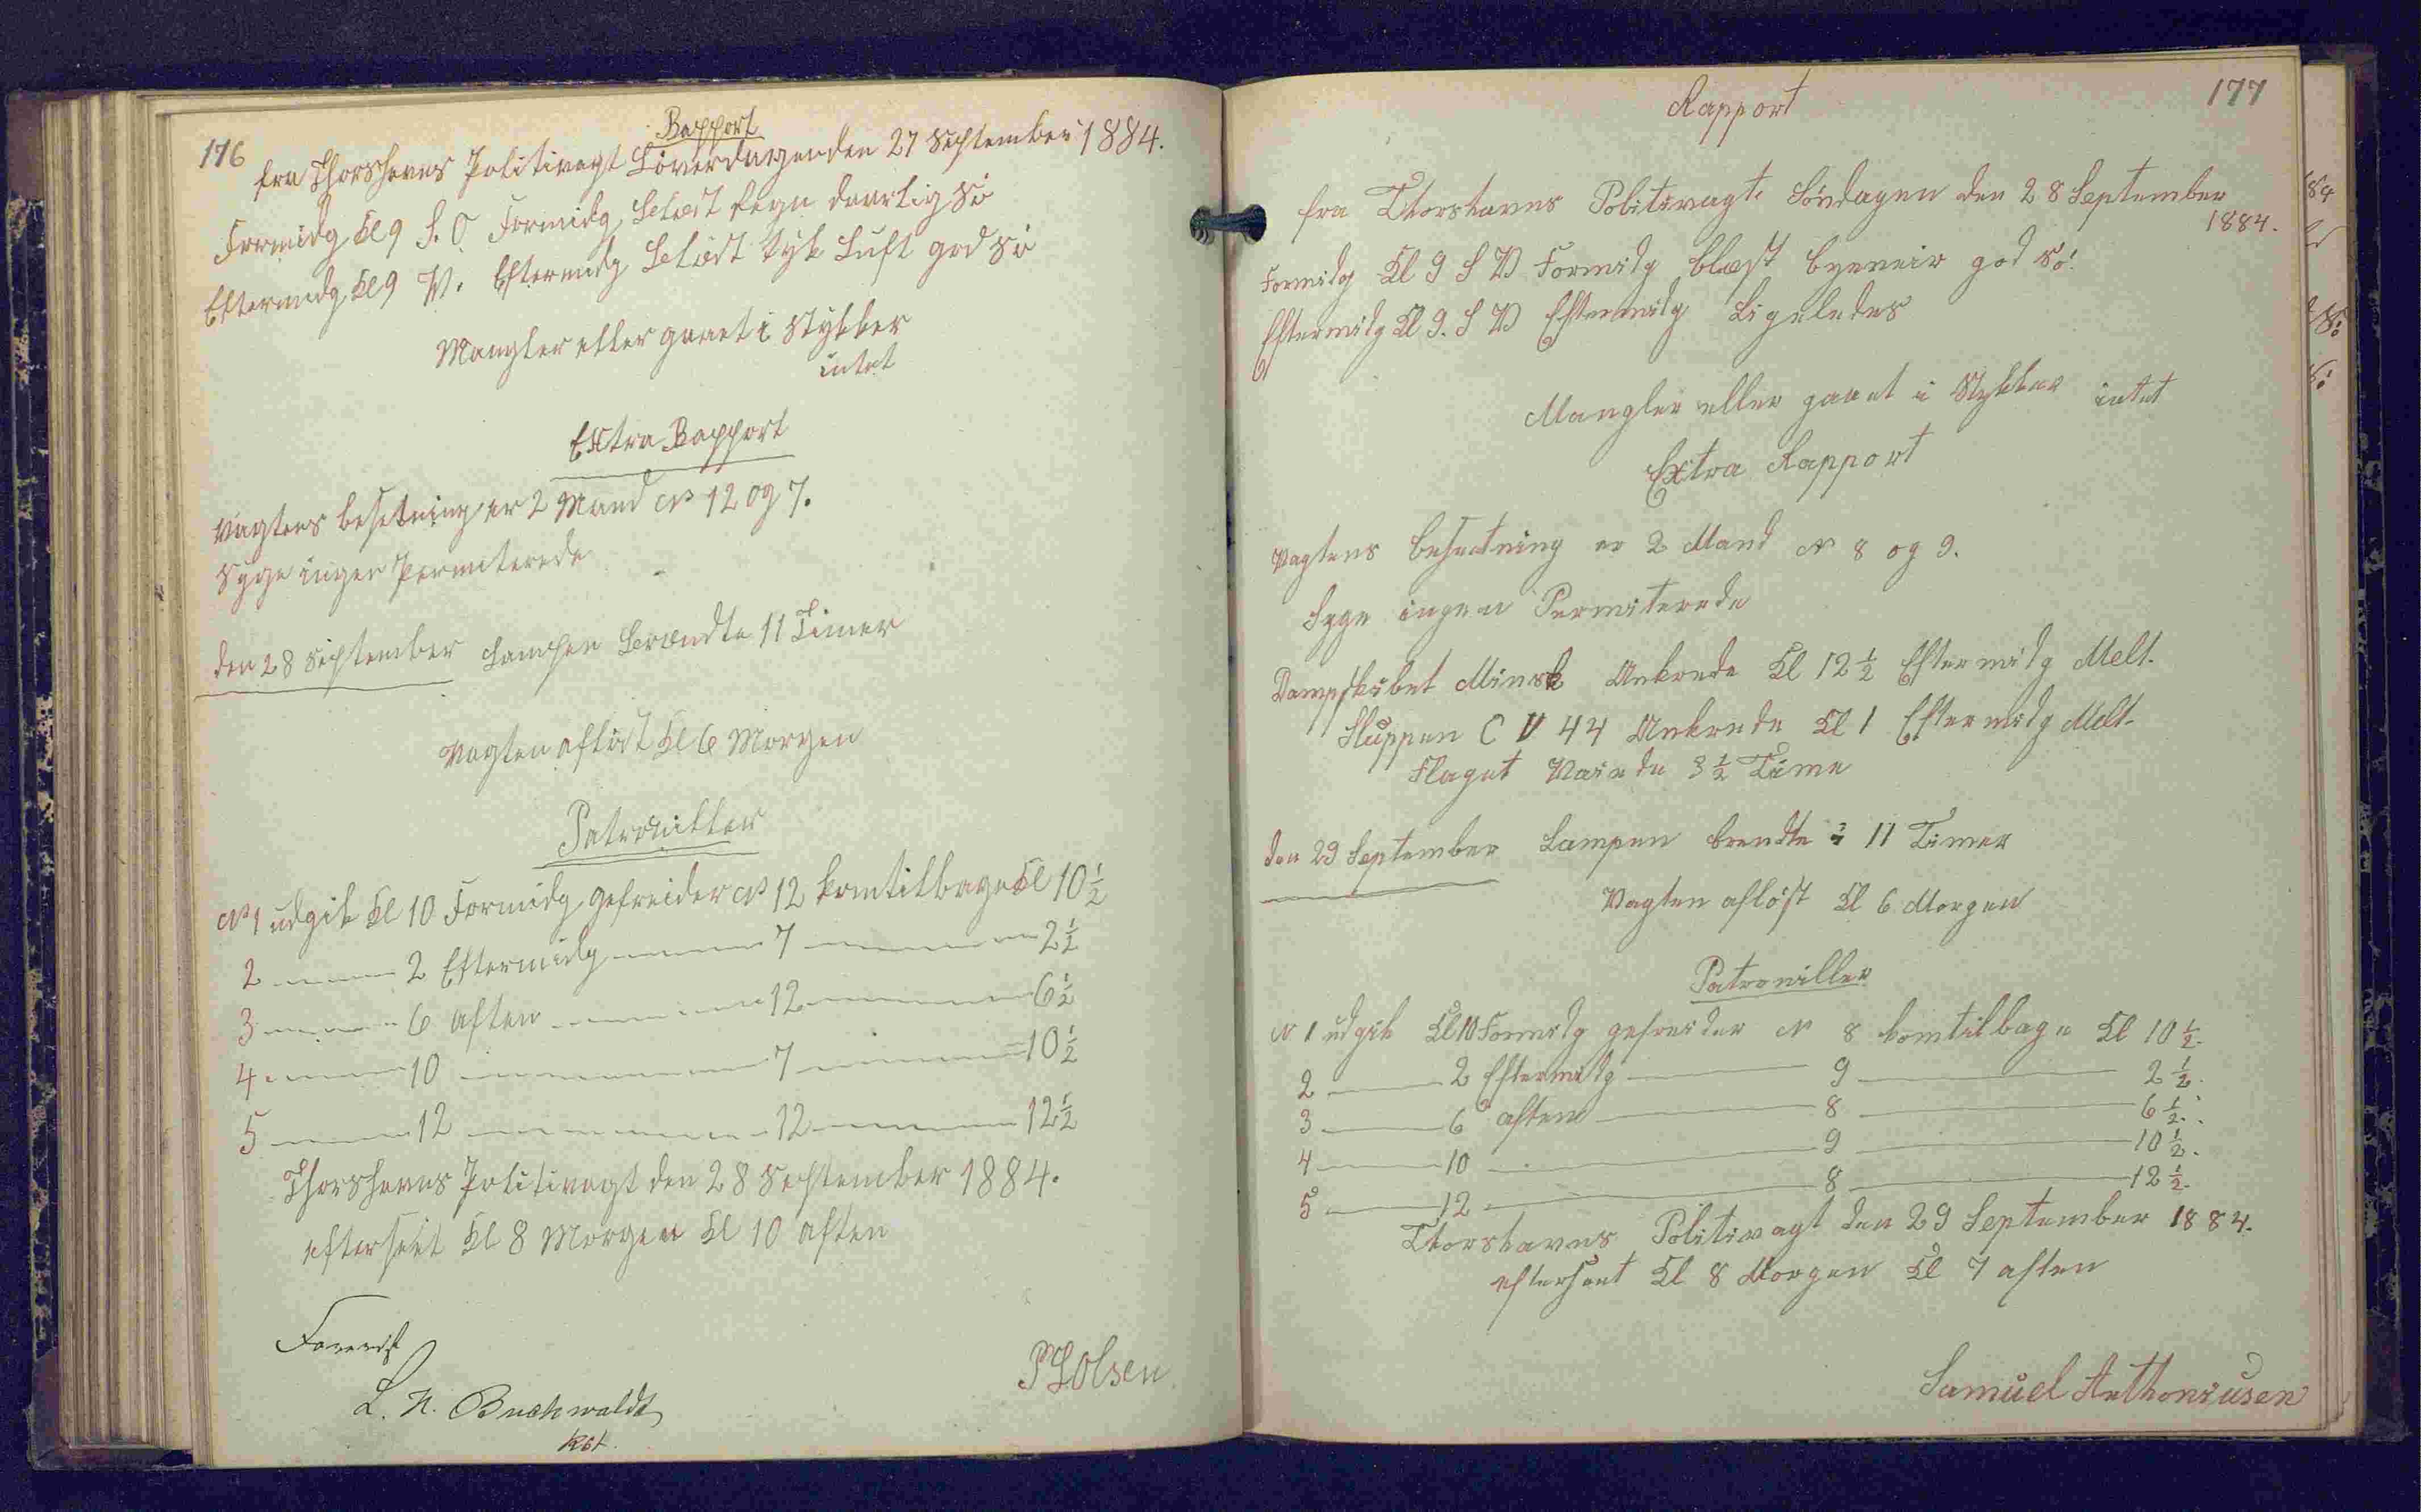 176
Rapport
fra Thorshavns Politivagt Löverdagen den 27 September 1884.
Formidg Kl 9 S. O Formidg Belæst Regn daarlig Sö
Eftermidg Kl 9 V. Eftermidg Belæst tyk Luft god Sö
Mangler eller gaaet i Stykker
intet
Extra Rapport
Vagtens besetning er 2 Mand No 12 og 7.
Syge ingen Permiterede
den 28 September Lampen Brændte 11 Timer
Vagten aflöst Kl 6 Morgen
Patrouiller
No 1 udgik Kl 10 Formidg gefreider No 12 komtilbage Kl 10 1/2
2 — 2 Eftermidg — 7 — 2 1/2
3 — 6 aften — 12 — 6 1/2
4 — 10 — 7 — 10 1/2
5 — 12 — 12 — 12 1/2
Thorshavns Politivagt den 28 September 1884.
efterseet Kl 8 Morgen Kl 10 aften
Forevist
L. N. Buchwaldt
Kst.
P L Olsen
177
Rapport
fra Thorshavns Politivagt Söndagen den 28 September
1884.
Formidg Kl 9 S V Formidg blæst god Sö.
Eftermidg Kl 9. S V Eftermidg Ligeledes
Mangler eller gaaet i Stykker intet
Extra Rapport
Vagtens besætning er 2 Mand No 8 og 9.
Syge ingen Permiterede
Dampskibet Minsk Ankrede Kl 12 1/2 Eftermidg Melt.
Sluppen C V 44 Ankrede Kl 1 Eftermidg Melt.
Flaget Vaiede 3 1/2 Time
den 29 September Lampen brendte i 11 Timer
Vagten aflöst Kl 6 Morgen
Patrouiller
N 1 udgik Kl 10 Formidg gefreider N 8 komtilbage Kl 10 1/2.
2 — 2 Eftermidg — 9 — 2 1/2.
3 — 6 aften — 8 — 6 1/2.
4 — 10 — 9 — 10 1/2.
5 — 12 — 8 — 12 1/2.
Thorshavns Politivagt den 29 September 1884.
efterseet Kl 8 Morgen Kl 7 aften
Samuel Anthoniusen